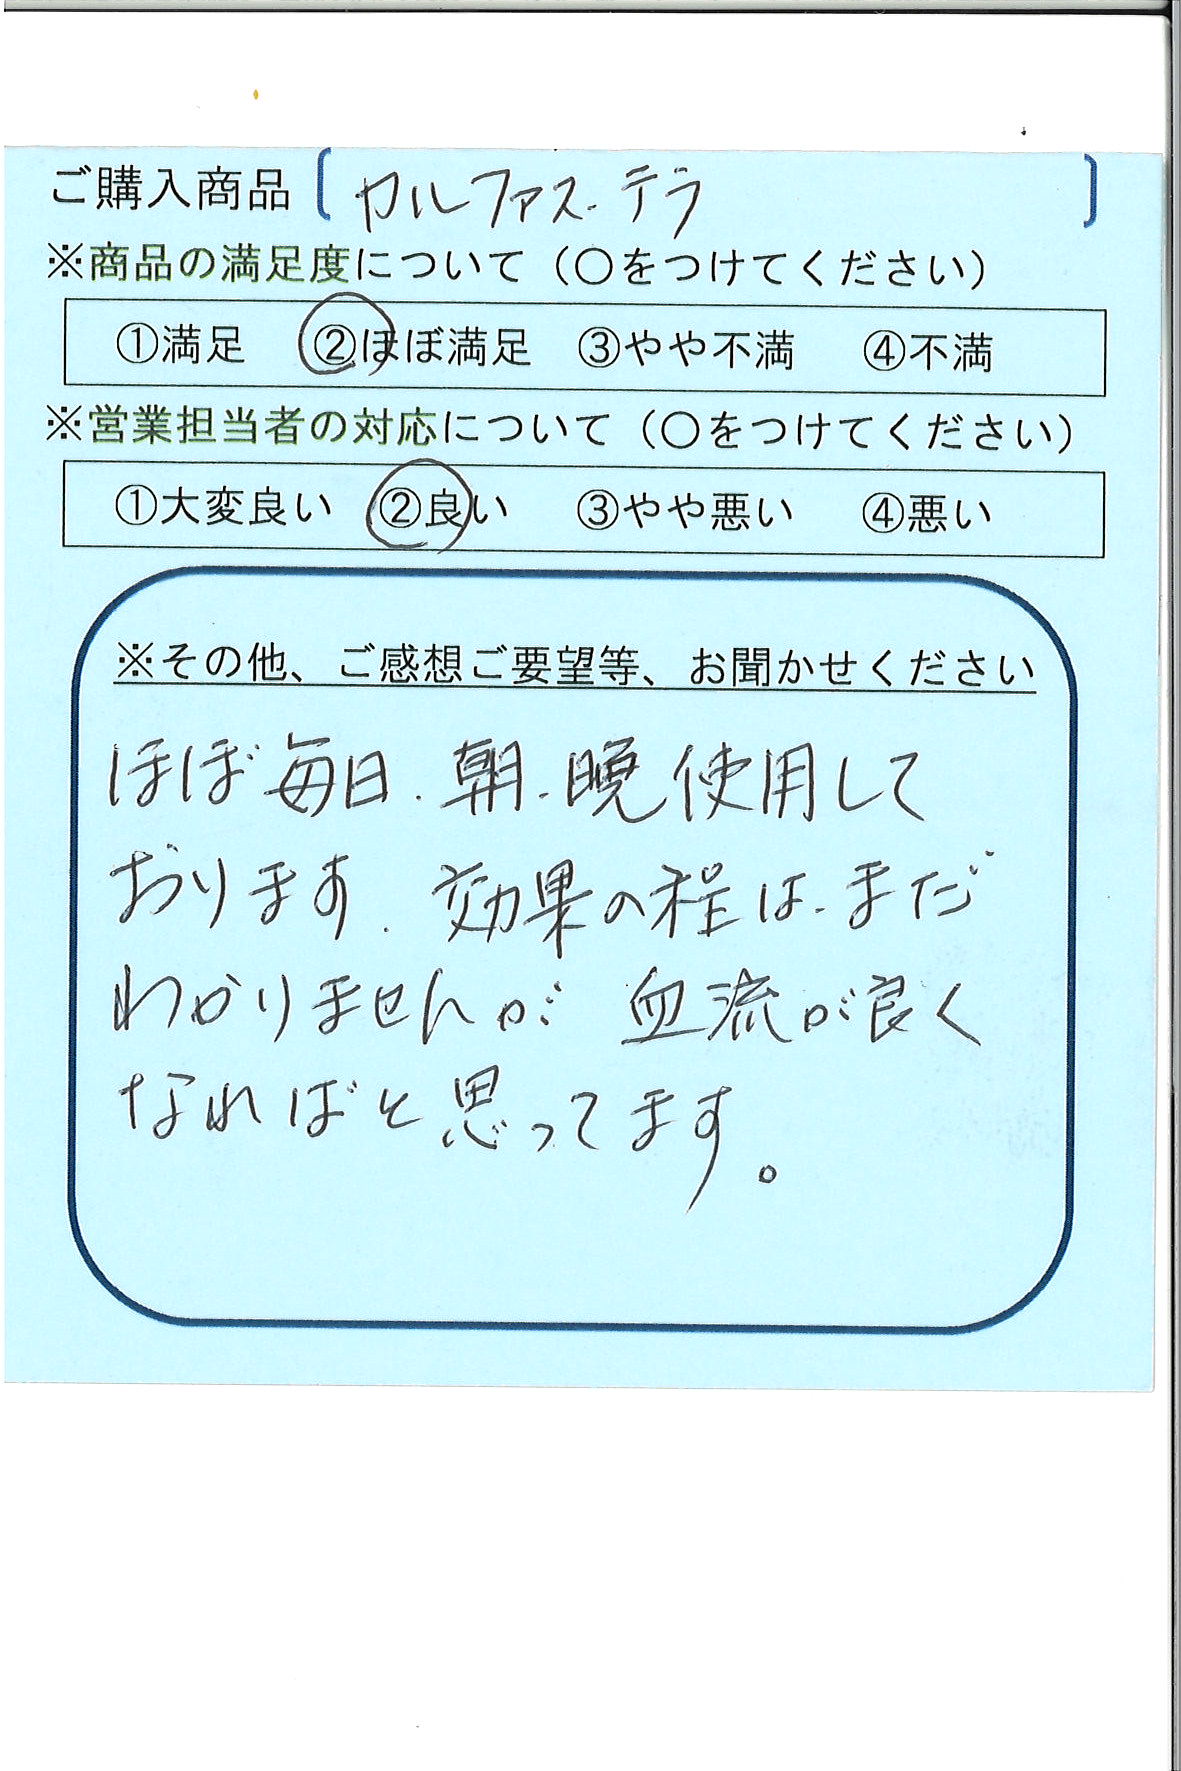 ご購入商品［カルファス・テラ］
※商品の満足度について（○をつけてください）
①満足　②ほぼ満足　③やや不満　④不満
※営業担当者の対応について（○をつけてください）
①大変良い　②良い　③やや悪い　④悪い
※その他、ご感想ご要望等、お聞かせください
ほぼ毎日、朝、晩使用して
おります、効果の程は、まだ
わかりませんが 血流が良く
なればと思ってます。